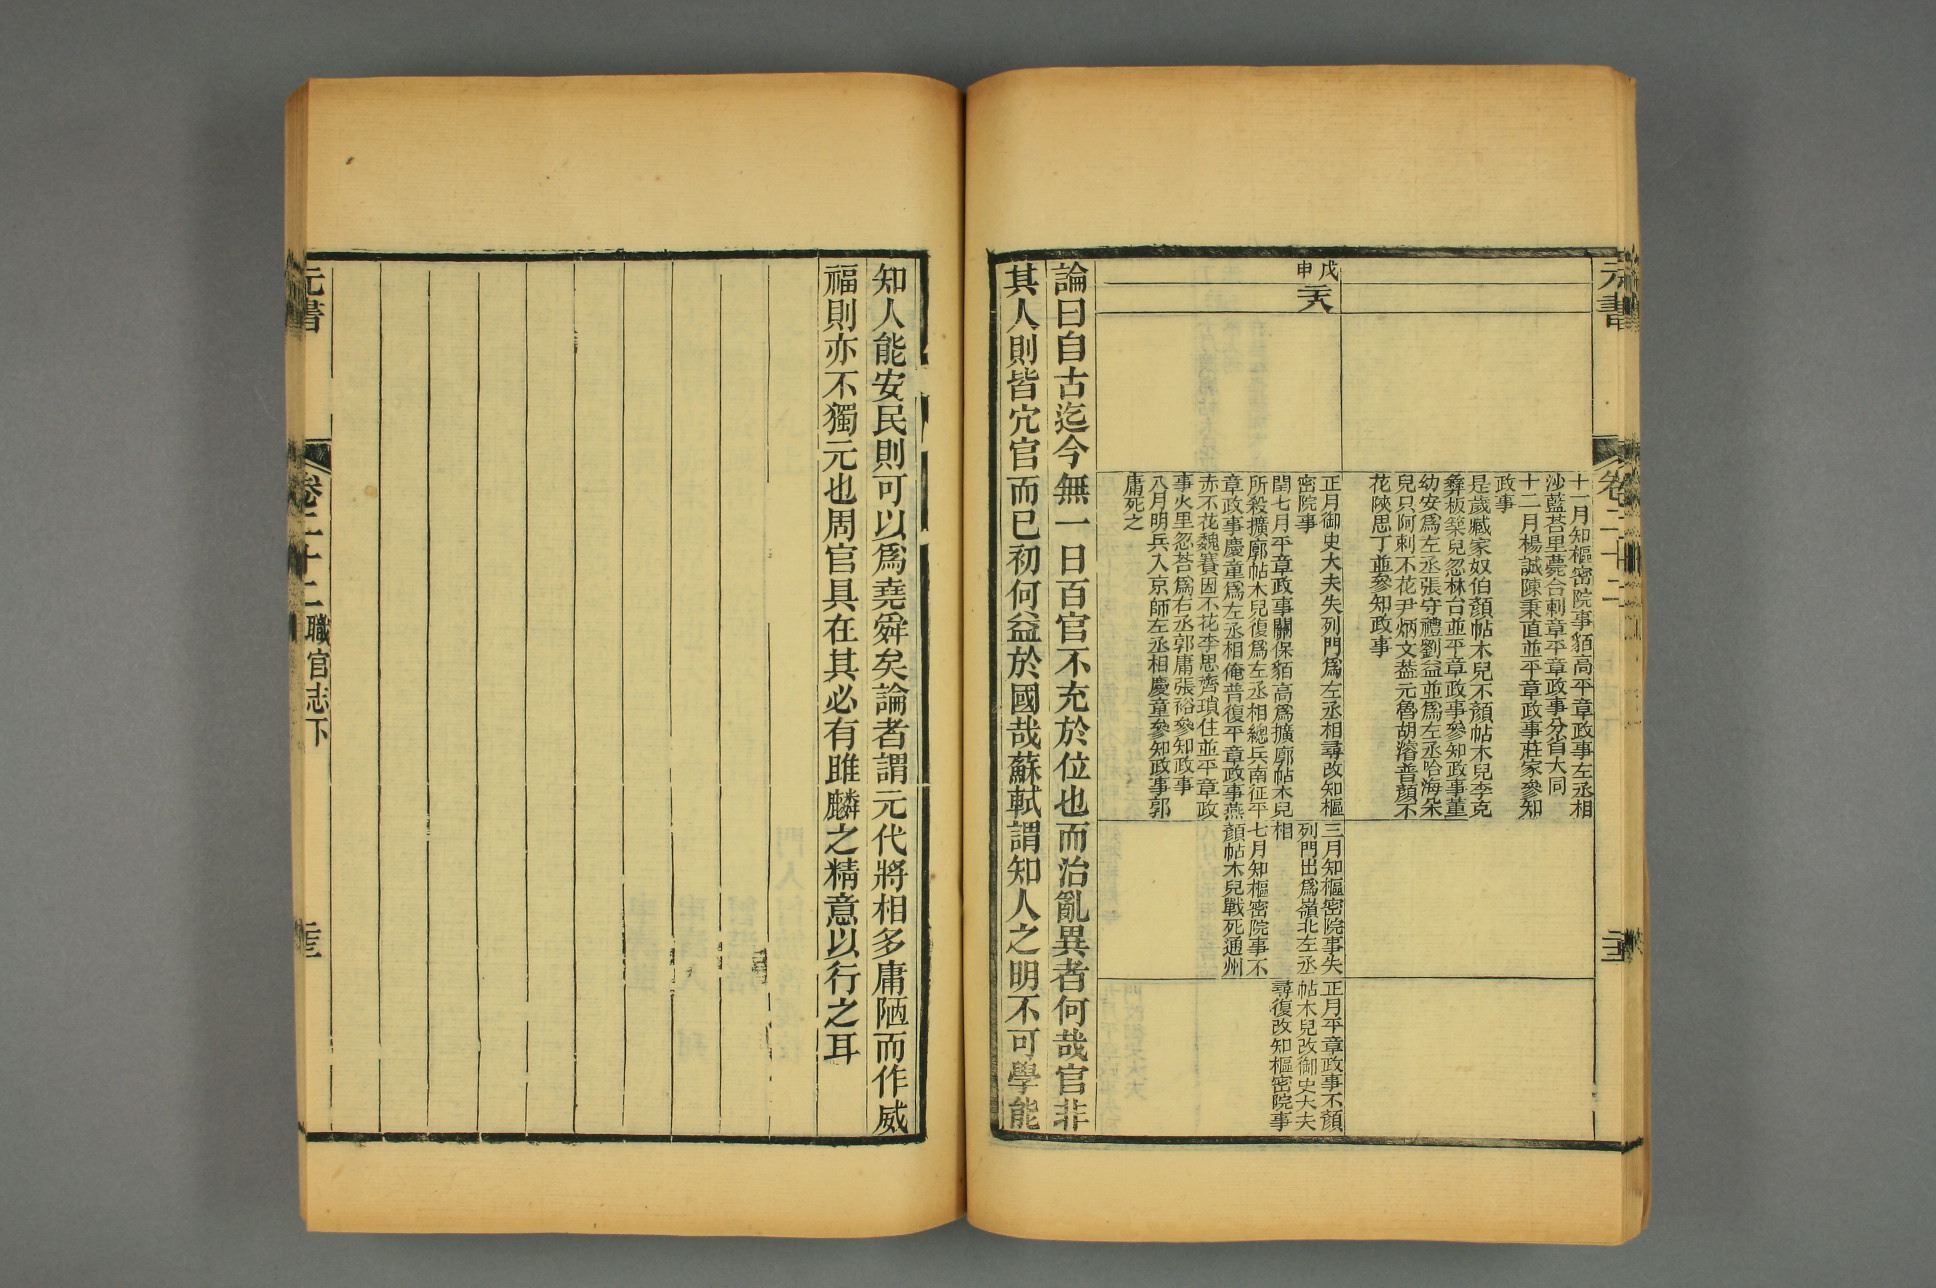 元書
卷二十二
十一月知樞密院事貊高平章政事左丞相
沙藍荅里薨合剌章平章政事分省大同
十二月楊誠陳秉直並平章政事莊家參知
政事
是歲臧家奴伯顏帖木兒不顏帖木兒李克
彝板築兒忽林台並平章政事參知政事董
幼安爲左丞張守禮劉益並爲左丞哈海朵
兒只阿剌不花尹炳文葢元魯胡濬普顏不
花陝思丁並參知政事
戊申
二十八
正月御史大夫失列門爲左丞相尋改知樞
密院事
閏七月平章政事關保貊高爲擴廓帖木兒
所殺擴廓帖木兒復爲左丞相總兵南征平
章政事慶童爲左丞相俺普復平章政事燕
赤不花魏賽因不花李思齊瑣住並平章政
事火里忽荅爲右丞郭庸張裕參知政事
八月明兵入京師左丞相慶童參知政事郭
庸死之
三月知樞密院事失
列門出爲嶺北左丞
相
七月知樞密院事不
顏帖木兒戰死通州
正月平章政事不顏
帖木兒改御史大夫
尋復改知樞密院事
論曰自古迄今無一日百官不充於位也而治亂異者何哉官非
其人則皆宂官而已初何益於國哉蘇軾謂知人之明不可學能
知人能安民則可以爲堯舜矣論者謂元代將相多庸陋而作威
福則亦不獨元也周官具在其必有雎麟之精意以行之耳
元書
卷二十二 職官志下